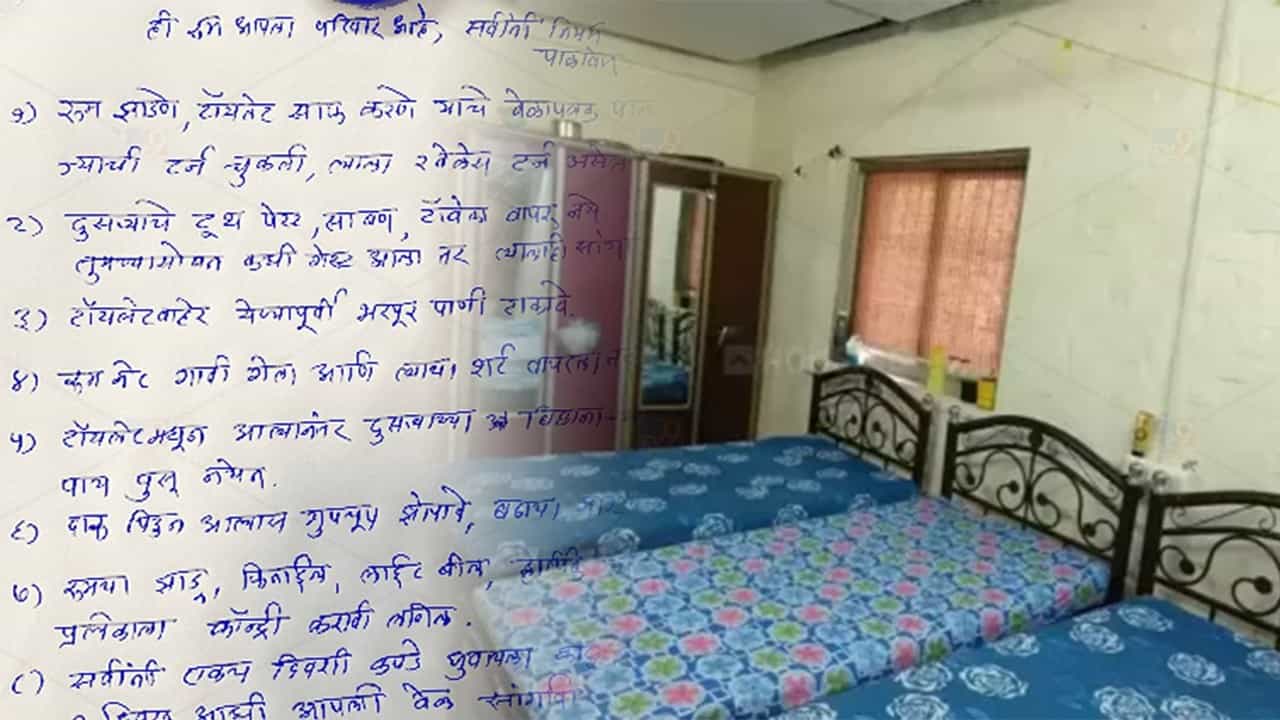 ही रुम आपला परिवार आहे, सर्वांनी नियम
पाळावेत
१) रुम झाडणे, टॉयलेट साफ करणे यांचे वेळापत्रक
ज्याची टर्न चुकली, त्याला २ वेळेस टर्न असेल
२) दुसऱ्याचे टूथ पेस्ट, साबण, टॉवेल वापरू नये
तुमच्यासोबत कधी गेस्ट आला तर त्यालाही
३) टॉयलेटवाटेर येण्यापूर्वी भरपूर पाणी टाकावे.
४) रुममेट गावी गेला आणि त्याचा शर्ट वापरला
५) टॉयलेटमधून आल्यानंतर दुसऱ्याच्या
पाय पुसू नयेत.
६) दारू पिऊन आल्यास गुपचूप झोपावे,
७) रुमचा झाडू, फिनाईल, लाईट बील,
प्रत्येकाला कॉन्ट्री करावी लागेल.
८) सर्वांनी एकाच दिवशी कपडे धुवायला
आपली वेळ